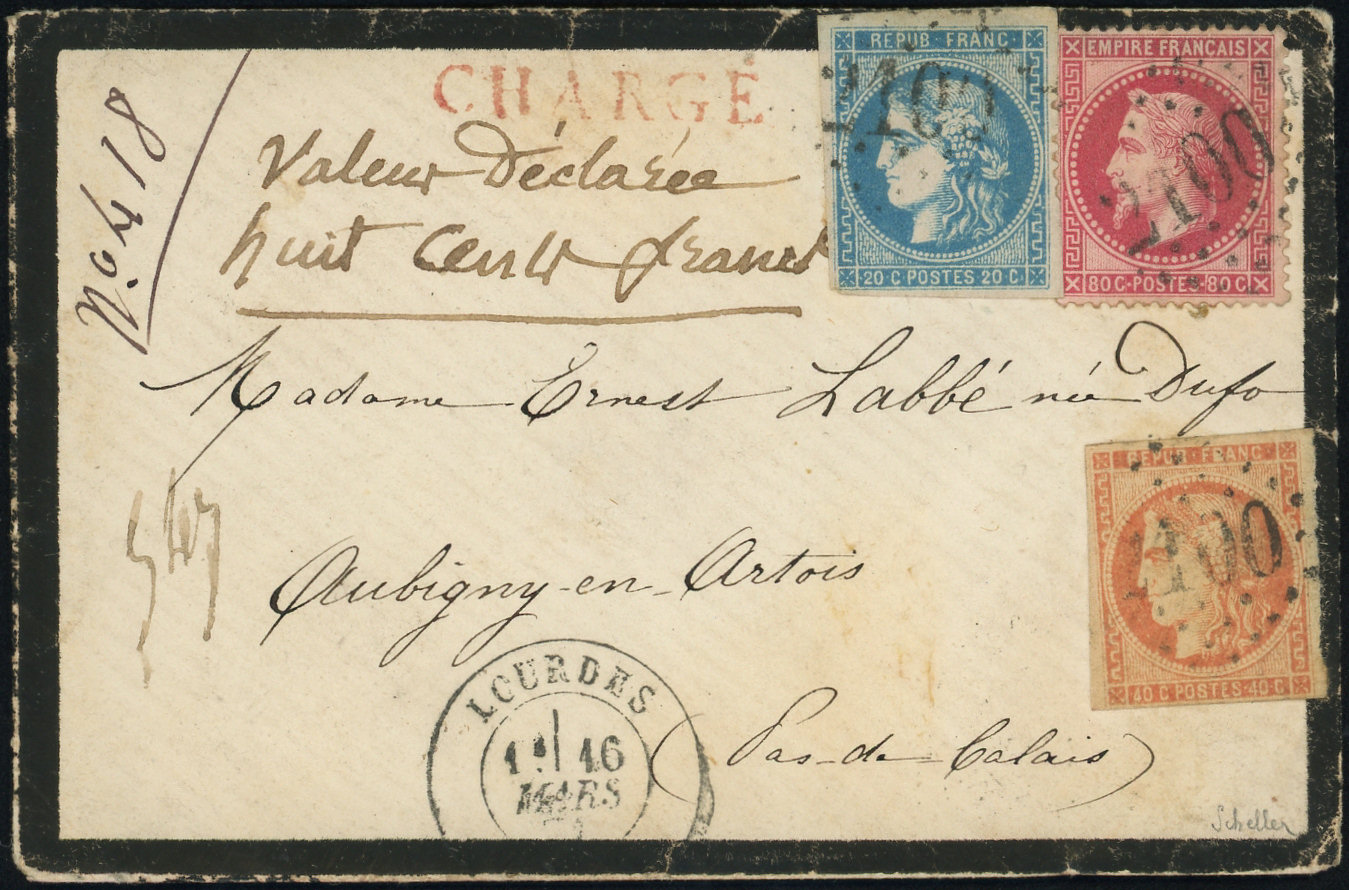 CHARGÉ
No 418
Valeur Déclarée
huit cents francs
REPUB FRANC
20 C POSTES 20 C.
EMPIRE FRANÇAIS
80 C POSTES 80 C
2100
Madame Ernest Labbé née Dufo
REPUB FRANC
40 C POSTES 40 C
2100
Aubigny-en-Artois
(Pas-de-Calais)
LOURDES
16
MARS
Scheller